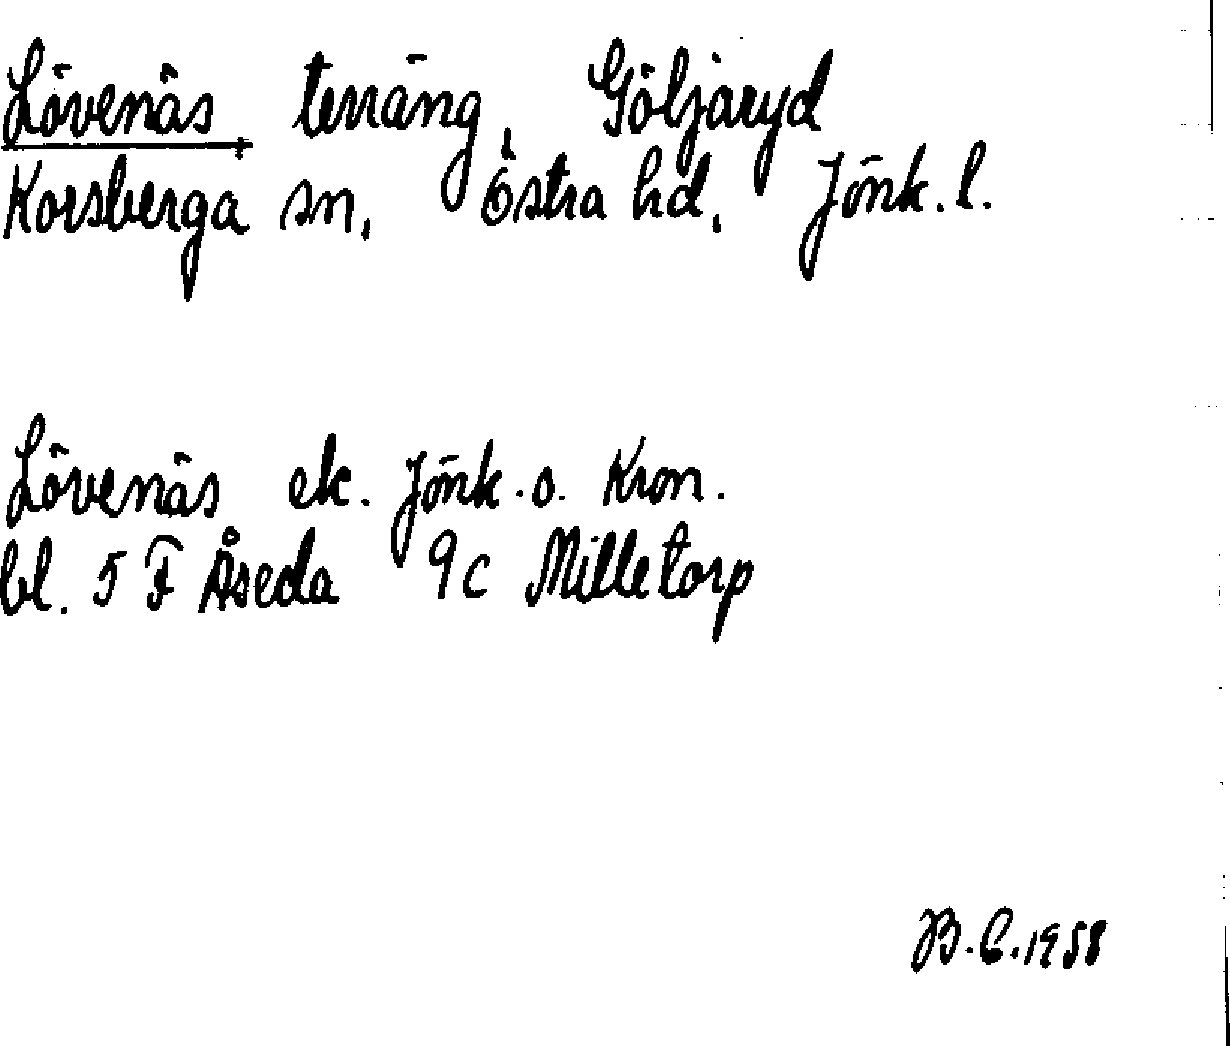 Lövenäs terräng, Göljaryd
Korsberga sn, Östra hd, Jönk. l.
Lövenäs ek. Jönk. o. Kron.
bl. 5 F Åseda 9c Milletorp
B.C. 1958